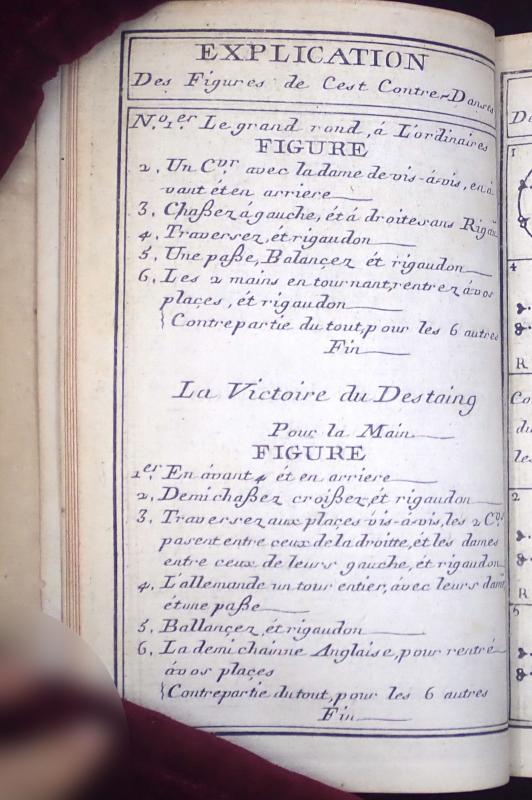 EXPLICATION
Des Figures de Cest Contre-Danses
No. 1.er Le grand rond, á L'ordinaires
FIGURE
2. Un C.vr avec la dame de vis-á-vis, en á
vant ét en arriere
3. Chaßez á gauche, ét á droite sans Rigau
4. Traversez, ét rigaudon
5. Une paße, Balançez ét rigaudon
6. Les 2 mains en tournant, rentrez á vos
places, ét rigaudon
Contrepartie du tout, pour les 6 autres
Fin
La Victoire du Destaing
Pour la Main
FIGURE
1er En ávant 4 ét en arriere
2. Demi chaßez croißez, ét rigaudon
3. Traversez aux places vis-a-vis, les 2 C.vs
pasent entre ceux de la droitte, ét les dames
entre ceux de leurs gauche, ét rigaudon
4. L'allemande un tour entier, ávec leurs dame
ét une paße
5. Ballançez ét rigaudon
6. La demi chainne Anglaise, pour rentré
á vos places
Contrepartie du tout, pour les 6 autres
Fin
1
4
R
Co
du
les
2
R
5